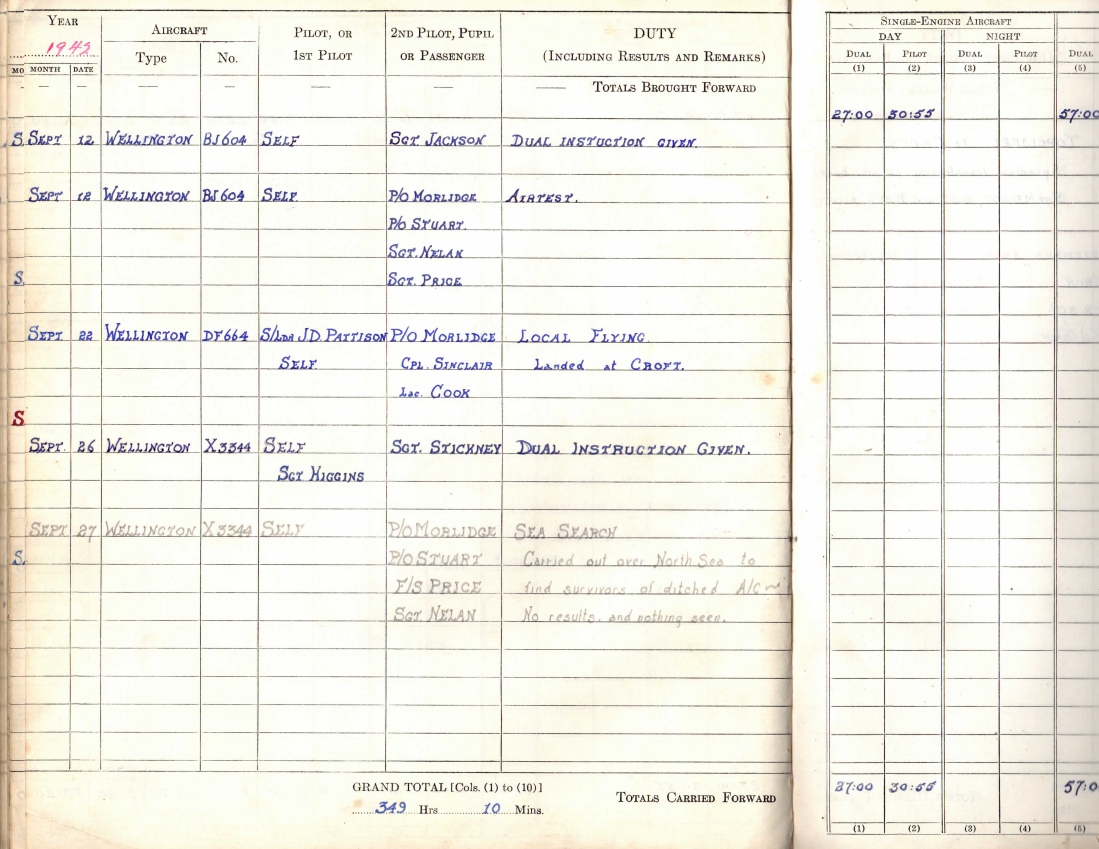 YEAR AIRCRAFT PILOT, OR 2ND PILOT, PUPIL DUTY SINGLE-ENGINE AIRCRAFT
1942 Type No. 1ST PILOT OR PASSENGER (INCLUDING RESULTS AND REMARKS) DAY NIGHT
MO MONTH DATE DUAL PILOT DUAL PILOT DUAL
(1) (2) (3) (4) (5)
— — — — — — —— TOTALS BROUGHT FORWARD
27:00 30:55 57:00
S. SEPT 12 WELLINGTON BJ604 SELF SGT. JACKSON DUAL INSTUCTION GIVEN.
SEPT 12 WELLINGTON BJ604 SELF P/O MORLIDGE AIRTEST.
P/O STUART.
SGT. NELAN
S. SGT. PRICE
SEPT. 22 WELLINGTON DF664 S/LDR J.D. PATTISON P/O MORLIDGE LOCAL FLYING.
SELF. CPL. SINCLAIR Landed at CROFT.
Lac. COOK
S
SEPT. 26 WELLINGTON X3344 SELF SGT. STICKNEY DUAL INSTRUCTION GIVEN.
SGT HIGGINS
SEPT 27 WELLINGTON X3344 SELF P/O MORLIDGE SEA SEARCH
S. P/O STUART Carried out over North Sea to
F/S PRICE find survivors of ditched A/C ~
SGT NELAN No results. and nothing seen.
GRAND TOTAL [Cols. (1) to (10)] TOTALS CARRIED FORWARD 27:00 30:55 57:0
349 Hrs 10 Mins.
(1) (2) (3) (4) (5)